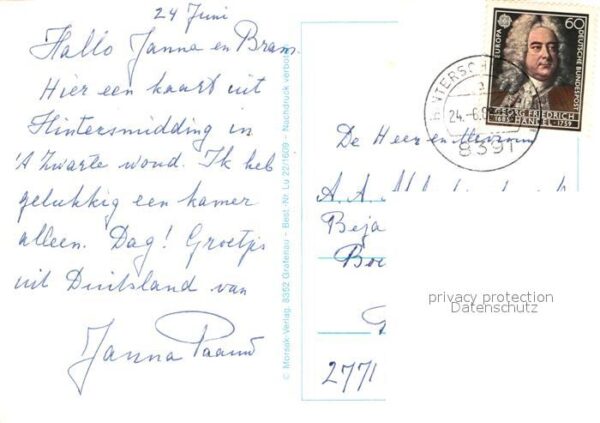 24 Juni
Hallo Janna en Bram.
Hier een kaart uit
Hintersmidding in
't Zwarte woud. Ik heb
gelukkig een kamer
alleen. Dag! Groetjes
uit Duitsland van
Janna
© Morsak-Verlag, 8352 Grafenau - Best.-Nr. Lu 22/1609 - Nachdruck verboten
EUROPA
60
DEUTSCHE BUNDESPOST
GEORG FRIEDRICH
HÄNDEL
1685 1759
HINTERSCH
a
24.-6.
8391
De Heer en Mevrouw
A. A.
Beja
Boe
2771
privacy protection
Datenschutz